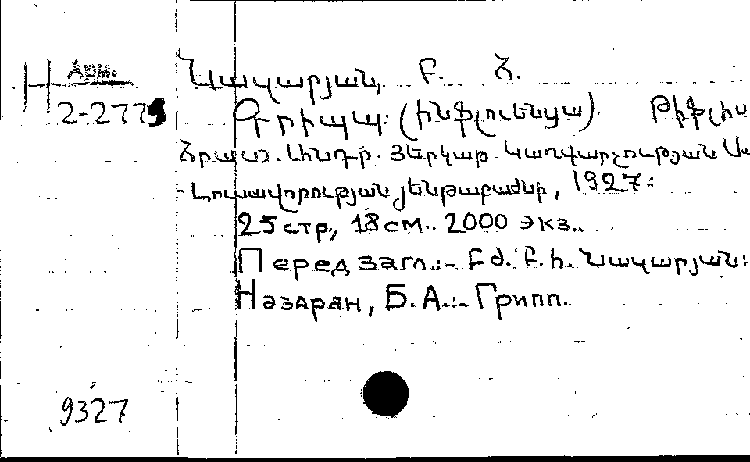 Арм.
2-2779
Նազարյան, Բ. Հ.
Գրիպպ (ինֆլուենցա). Թիֆլիս
Հրատ. Անդր. Յերկաթ. Կառվարչության
Լուսավորության յենթաբաժնի, 1927:
25 стр., 18 см.. 2000 экз..
Перед загл.:- Բժ. Բ. Հ. Նազարյան:
Назарян, Б. А.:- Грипп.
9327